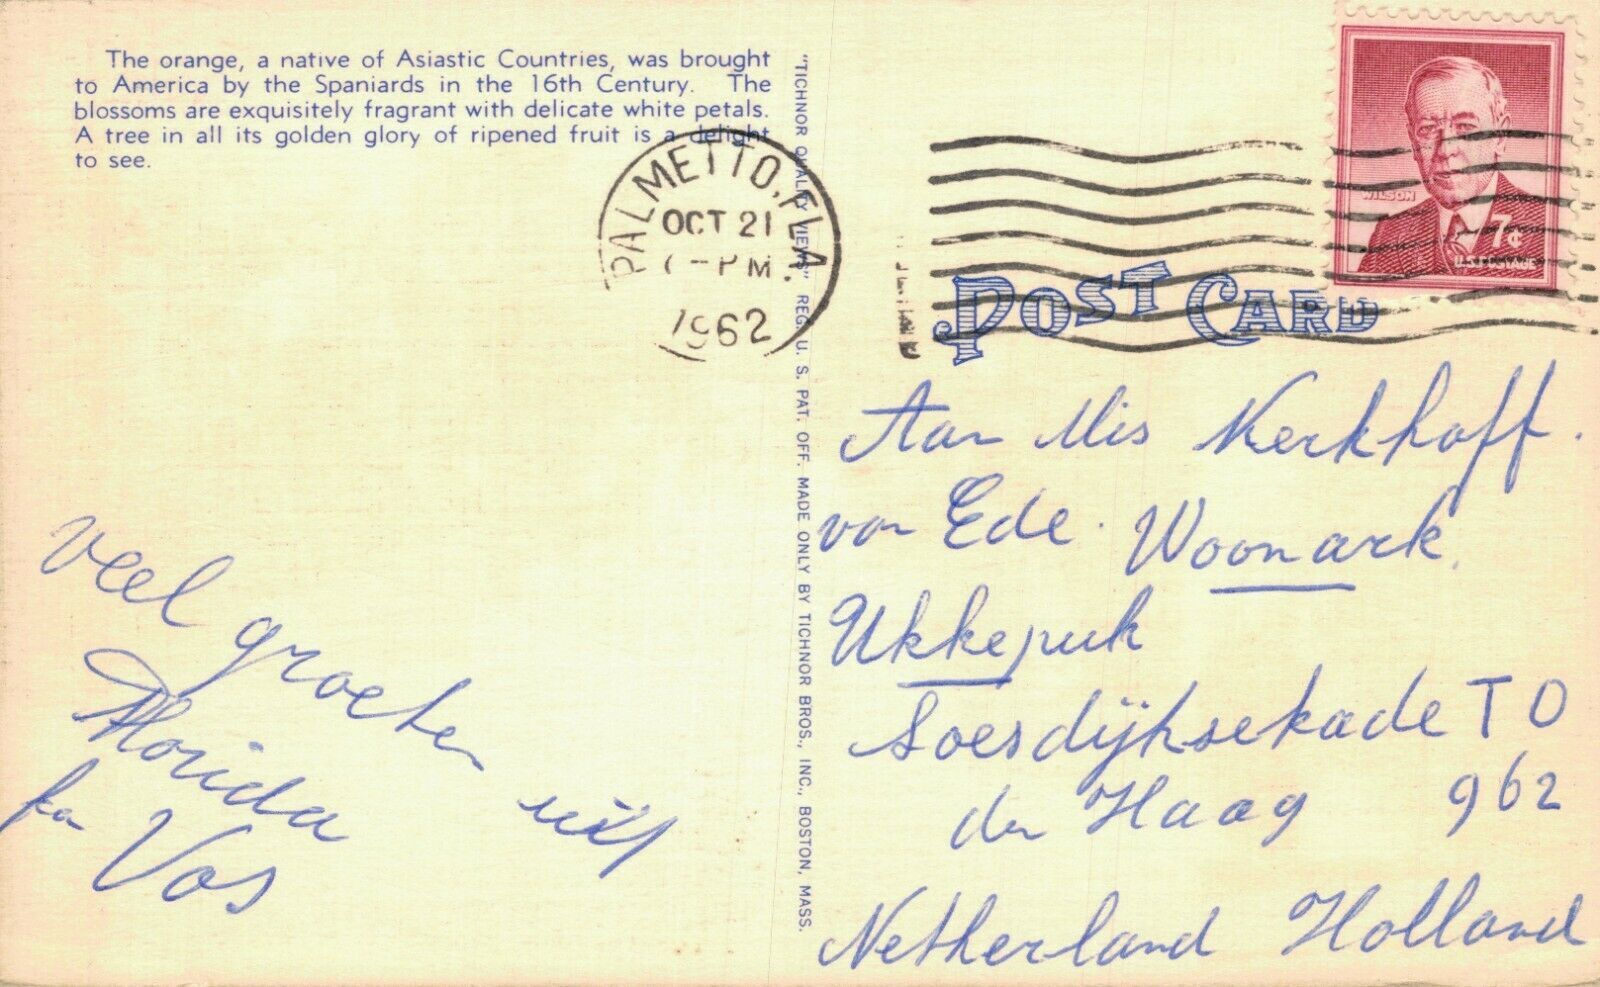 The orange, a native of Asiastic Countries, was brought
to America by the Spaniards in the 16th Century. The
blossoms are exquisitely fragrant with delicate white petals.
A tree in all its golden glory of ripened fruit is a delight
to see.
veel groeten uit
Florida
fa
Vos
"TICHNOR QUALITY VIEWS" REG. U. S. PAT. OFF. MADE ONLY BY TICHNOR BROS., INC., BOSTON, MASS.
PALMETTO, FLA.
OCT 21
PM
1962
WILSON
7¢
U.S. POSTAGE
POST CARD
Aan Mis Kerkhoff.
van Ede. Woonark.
Ukkepuk
Soesdijksekade TO
den Haag 962
Netherland Holland